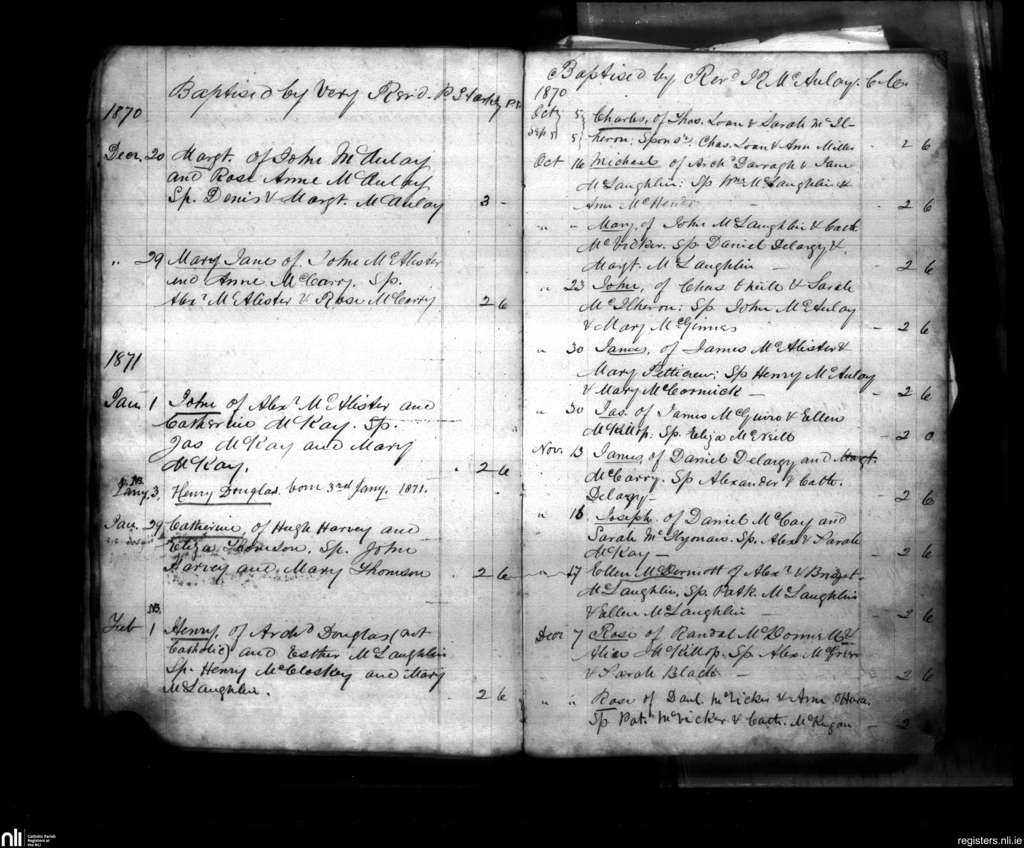 Baptised by Very Revd. P. Starkey P.P.
1870
Decr. 20 Margt. of John McAulay
and Rose Anne McAulay
Sp. Denis & Margt. McAulay 3 -
" 29 Mary Jane of John McAlister
and Anne McCarry. Sp.
Alexr McAlister & Rose McCarry 2 6
1871
Jan 1 John of Alexr McAlister and
Catherine McKay. Sp.
Jas McKay and Mary
McKay. 2 6
NB.
Jany. 3. Henry Douglas. born 3rd Jany. 1871.
Jan. 29 Catherine, of Hugh Harvey and
Eliza Thomson, Sp. John
Harvey and Mary Thomson 2 6
NB.
Feb 1 Henry, of Archd Douglas (not
Catholic) and Esther McLaughlin
Sp. Henry McCloskey and Mary
McLaughlin. 2 6
Baptised by Revd. McAulay. C.C.
1870
Oct 5 Charles, of Thos. Loan & Sarah McIl-
heron: Sponsrs Chas. Loan & Ann Miller - 2 6
Oct 16 Michael of Archd Darragh & Jane
McLaughlin: Sp Wm McLaughlin &
Ann McHenry - 2 6
" " Mary, of John McLaughlin & Cath.
McVicker. Sp Daniel Delargy &
Margt. McLaughlin - 2 6
" 23 John, of Chas & Sarah
McIlheron: Sp John McAulay
& Mary McGinnes - 2 6
" 30 James, of James McAlister &
Mary Petticrew: Sp Henry McAulay
& Mary McCormick - 2 6
" 30 Jas. of James McGuire & Ellen
McKillop: Sp. Eliza McNeill - 2 0
Nov. 13 James, of Daniel Delargy and Margt.
McCarry. Sp Alexander & Cath.
Delargy - 2 6
" 16 Joseph of Daniel McCay and
Sarah. Sp. Alexr & Sarah
McKay - 2 6
" 17 Ellen McDermott of Alexr & Bridget
McLaughlin. Sp. Patk. McLaughlin
& Ellen McLaughlin - 2 6
Decr 7 Rose of Randal McDonnell &
Alice McKillop. Sp Alex
& Sarah Black - 2 6
" " Rose of Danl McVicker & Ann O'Hara.
Sp Pat. McVicker & Cath. McKeegan - 2
nli
Catholic Parish
Registers at
the NLI
registers.nli.ie